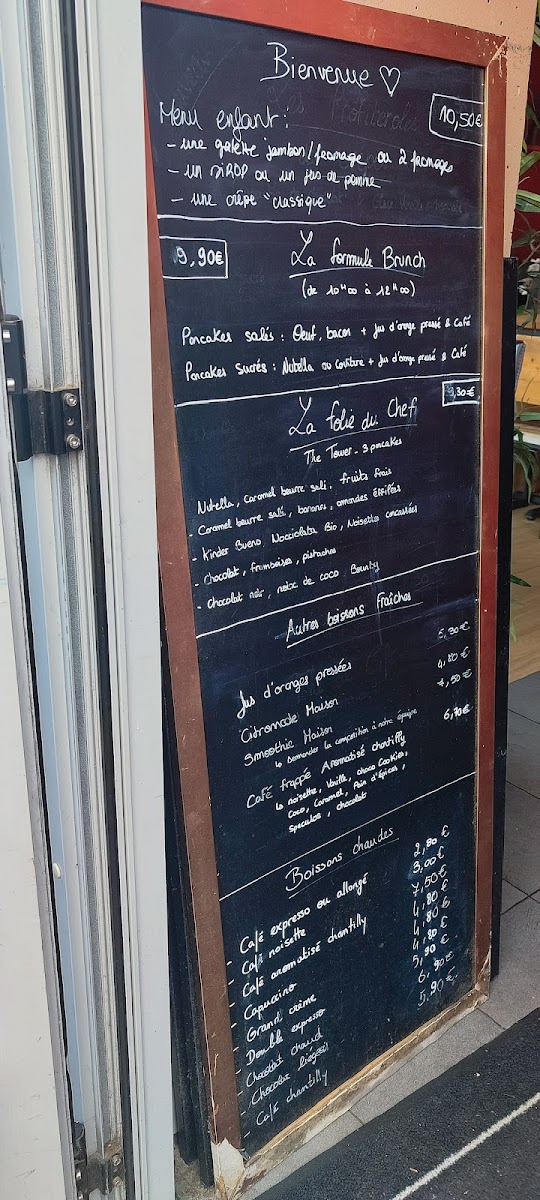 Bienvenue ♡
Menu enfant : 10,50€
- une galette jambon/fromage ou 2 fromages
- un SIROP ou un jus de pomme
- une crêpe "classique"
9,90€
La formule Brunch
(de 10H00 à 12H00)
Pancakes salés : Oeuf, bacon + Jus d'orange pressé & Café
Pancakes Sucrés : Nutella ou confiture + Jus d'orange pressé & Café
9,30€
La folie du Chef
The Tower - 3 pancakes
Nutella, Caramel beurre salé, fruits frais
- Caramel beurre salé, bananes, amandes effilées
- Kinder Bueno, Nocciolata Bio, Noisettes concassées
- Chocolat, framboises, pistaches
- Chocolat noir, noix de coco Bounty
Autres boissons Fraîches
Jus d'oranges pressées 5,90€
Citronnade Maison 4,80€
Smoothie Maison 7,50€
↳ Demander la composition à notre équipe
Café frappé Aromatisé chantilly 6,70€
↳ noisette, Vanille, choco Cookies,
Coco, Caramel, Pain d'épices,
Speculos, chocolat
Boissons chaudes
- Café expresso ou allongé 2,80€
- Café noisette 3,00€
- Café aromatisé chantilly 7,50€
- Capuccino 4,80€
- Grand crème 4,80€
- Double expresso 4,80€
- Chocolat chaud 5,90€
- Chocolat liégeois 6,90€
- Café chantilly 5,90€